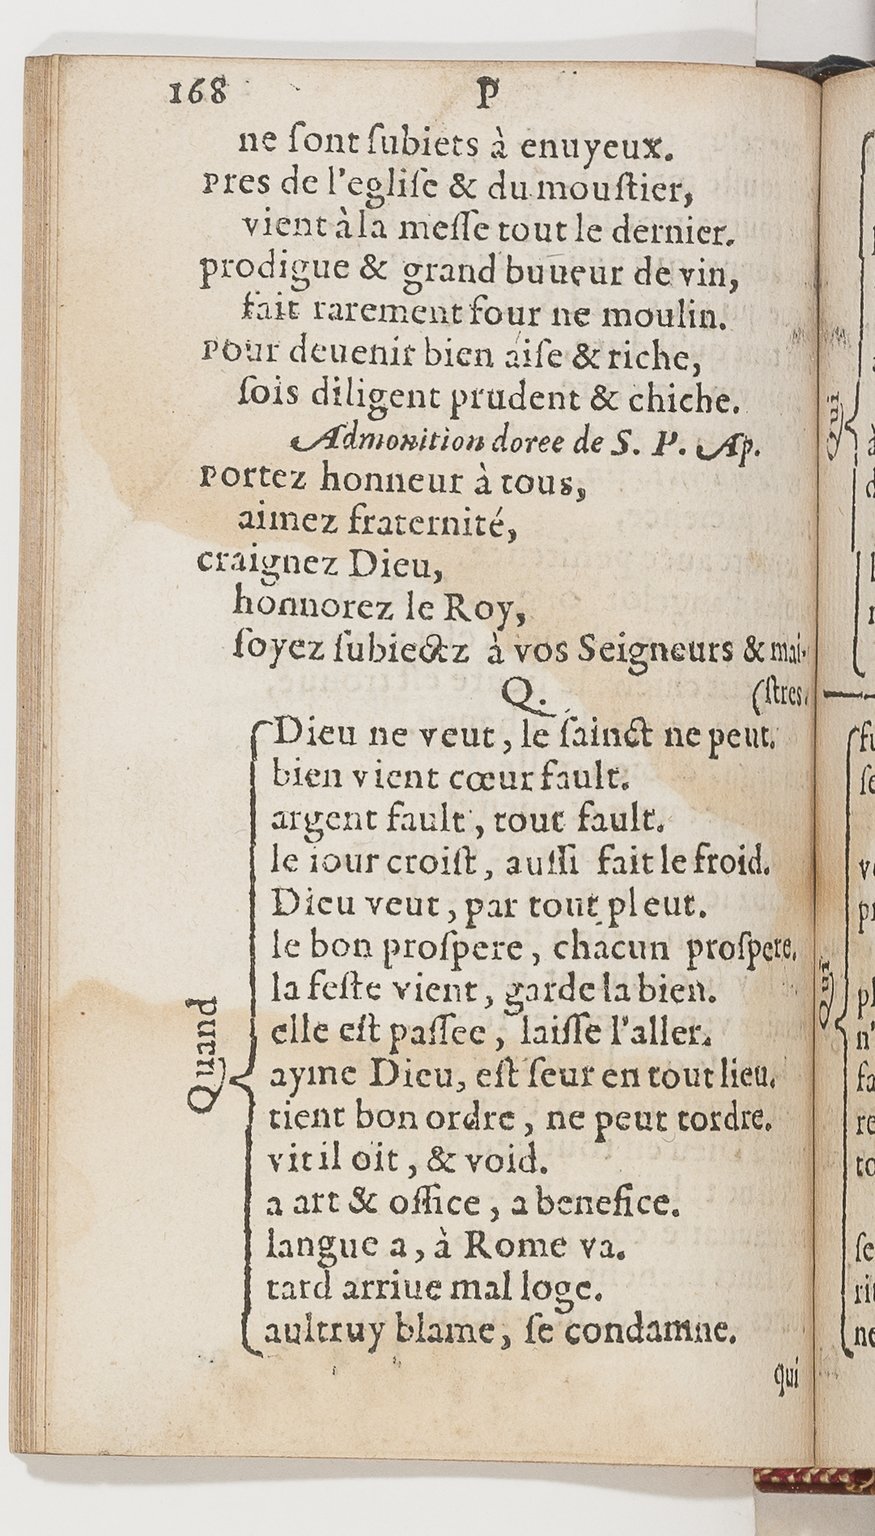 168 P
ne ſont ſubiets à enuyeux.
Pres de l'egliſe & du mouſtier,
vient à la meſſe tout le dernier.
prodigue & grand buueur de vin,
fait rarement four ne moulin.
Pour deuenir bien aiſe & riche,
ſois diligent prudent & chiche.
Admonition doree de S. P. Ap.
Portez honneur à tous,
aimez fraternité,
craignez Dieu,
honnorez le Roy,
ſoyez ſubiectz à vos Seigneurs & mai-
(ſtres.
Q.
Quand
Dieu ne veut, le ſainct ne peut.
bien vient cœur fault.
argent fault, tout fault.
le iour croiſt, auſſi fait le froid.
Dieu veut, par tout pleut.
le bon proſpere, chacun proſpere.
la feſte vient, garde la bien.
elle eſt paſſee, laiſſe l'aller.
ayme Dieu, eſt ſeur en tout lieu.
tient bon ordre, ne peut tordre.
vit il oit, & void.
a art & office, a benefice.
langue a, à Rome va.
tard arriue mal loge.
aultruy blame, ſe condamne.
qui
Qui
Qui